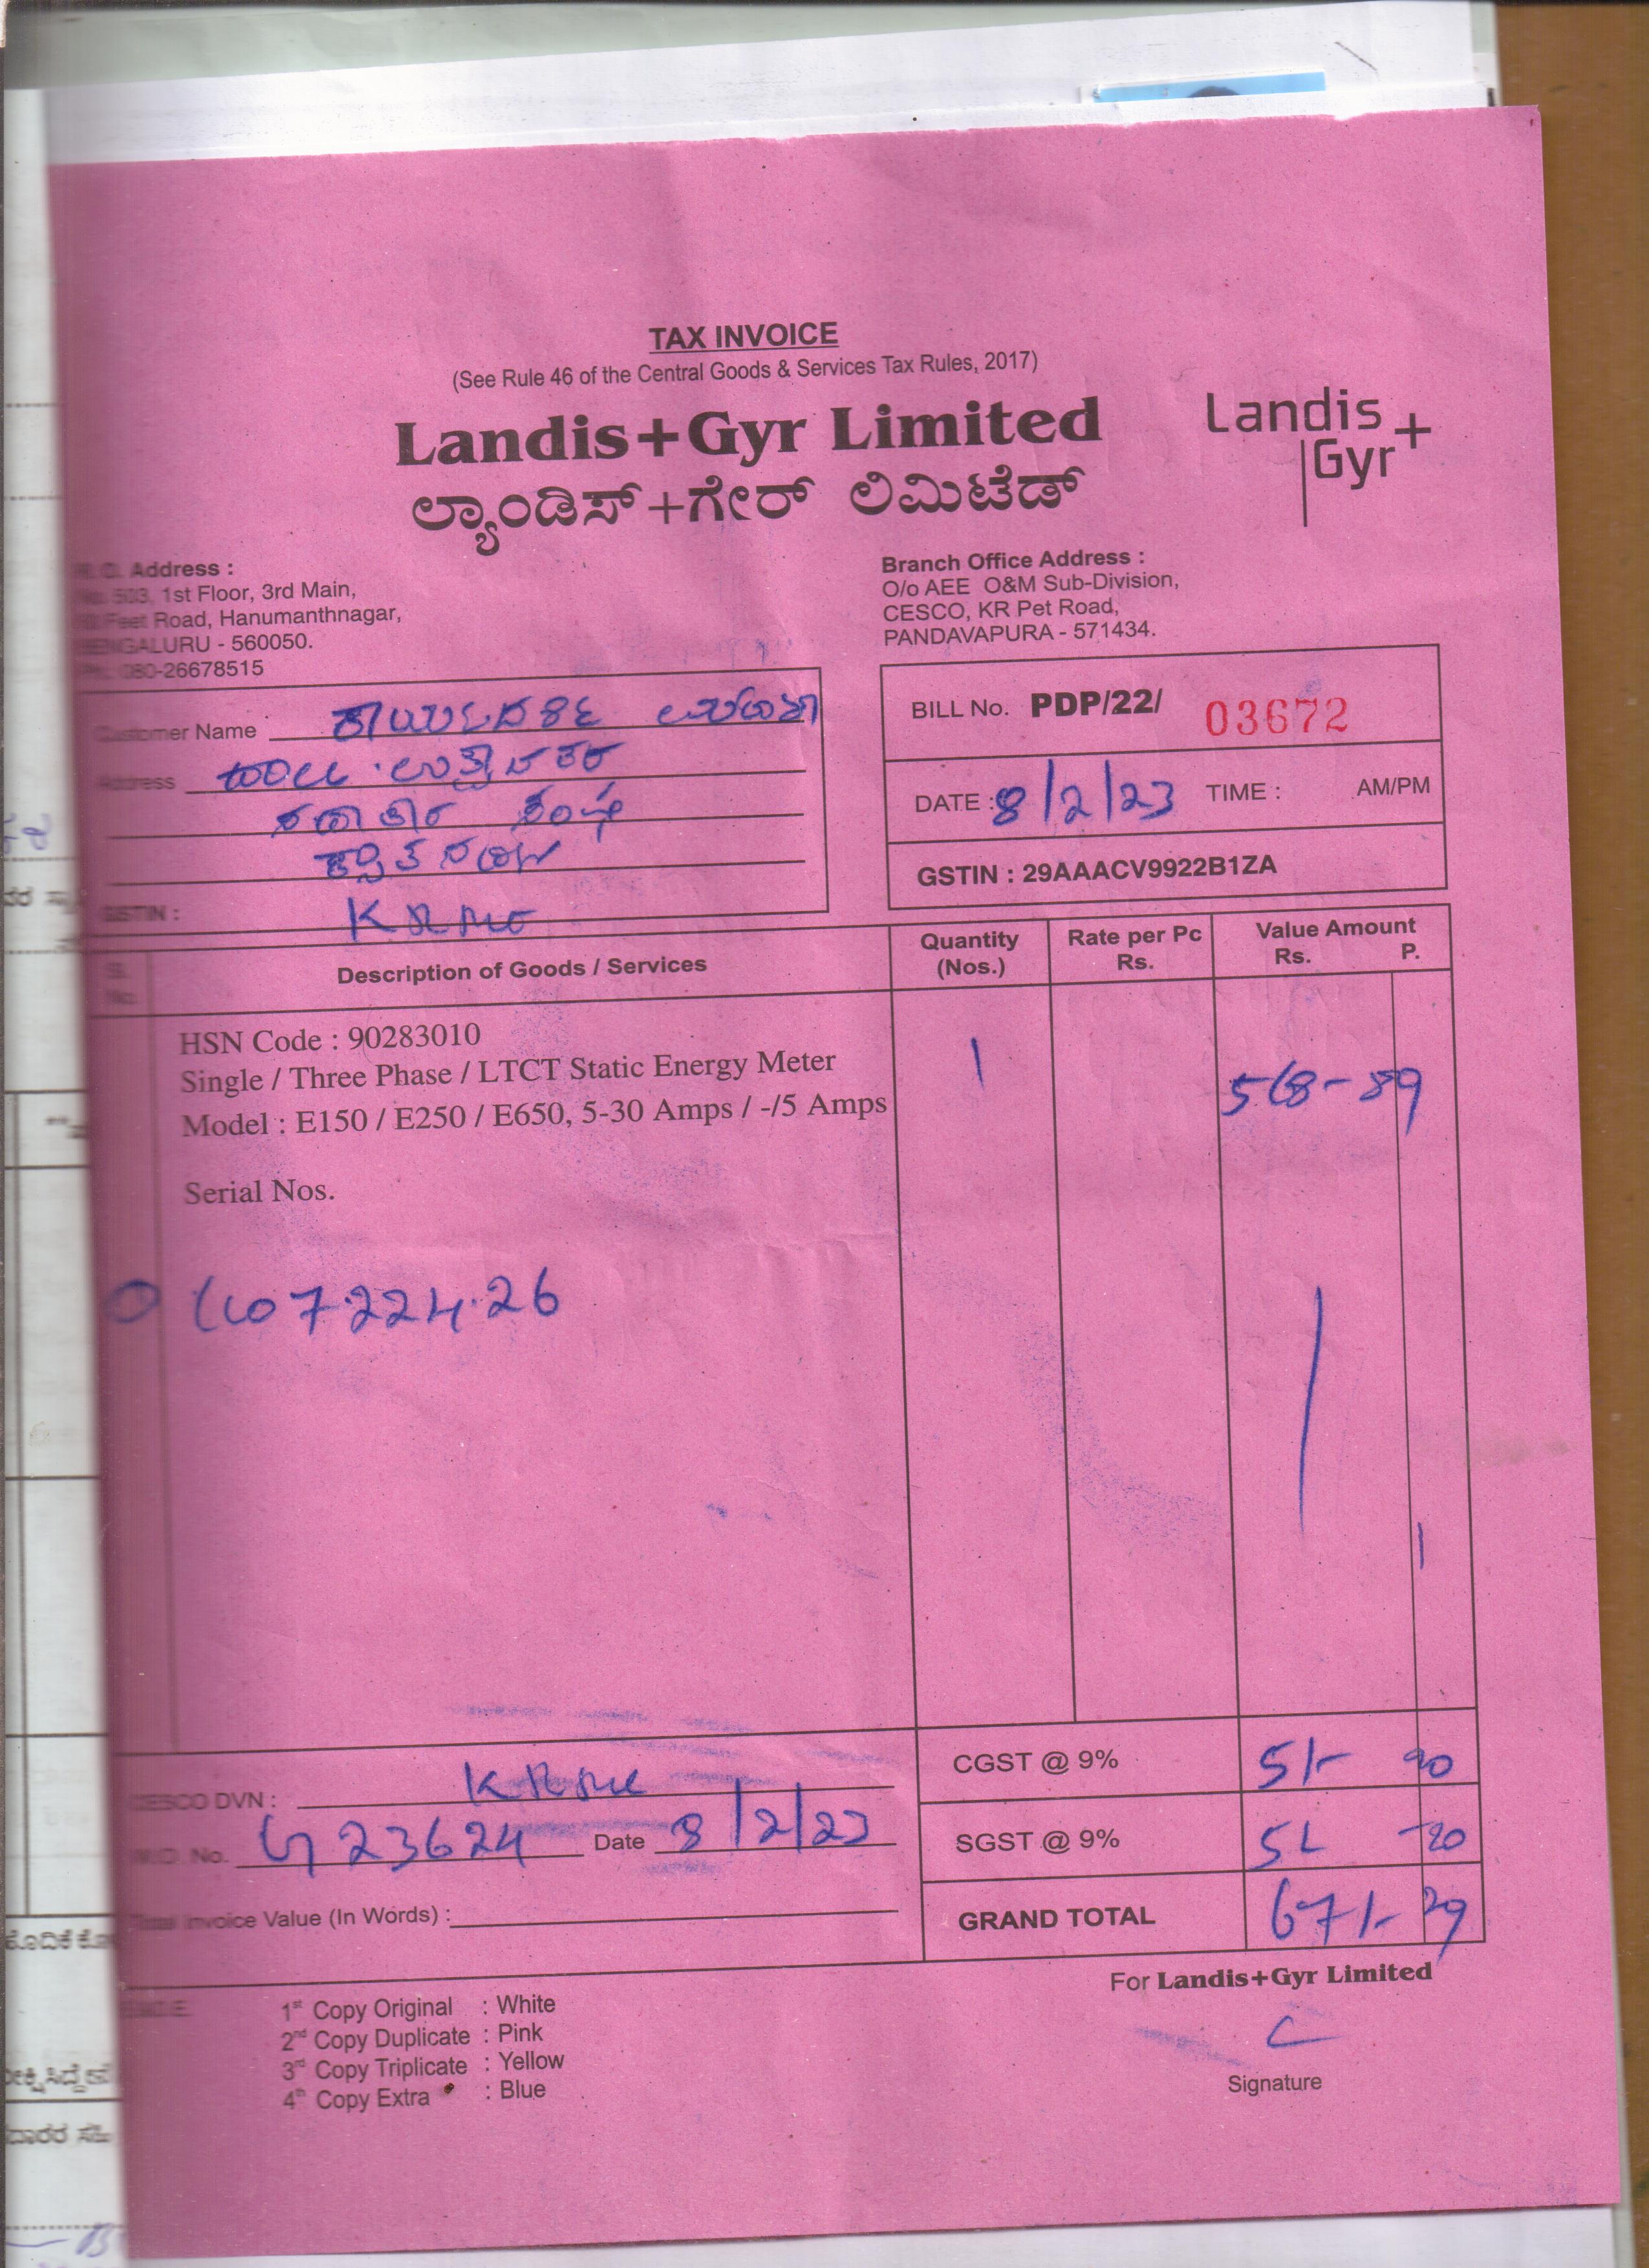 TAX INVOICE
(See Rule 46 of the Central Goods & Services Tax Rules, 2017)
Landis+Gyr Limited
Landis+
Gyr
ಲ್ಯಾಂಡಿಸ್+ಗೇರ್ ಲಿಮಿಟೆಡ್
Address :
503, 1st Floor, 3rd Main,
Feet Road, Hanumanthnagar,
BENGALURU - 560050.
080-26678515
Branch Office Address :
O/o AEE O&M Sub-Division,
CESCO, KR Pet Road,
PANDAVAPURA - 571434.
Customer Name
Address
GSTIN :
BILL No. PDP/22/ 03672
DATE : 8/2/23 TIME : AM/PM
GSTIN : 29AAACV9922B1ZA
Sl. No. Description of Goods / Services Quantity (Nos.) Rate per Pc Rs. Value Amount Rs. P.
HSN Code : 90283010
Single / Three Phase / LTCT Static Energy Meter 1 568-89
Model : E150 / E250 / E650, 5-30 Amps / -/5 Amps
Serial Nos.
CESCO DVN :
No. 23624 Date 8/2/23
Total Invoice Value (In Words) :
CGST @ 9% 51- 20
SGST @ 9% 51 -20
GRAND TOTAL 671- 29
For Landis+Gyr Limited
Signature
1st Copy Original : White
2nd Copy Duplicate : Pink
3rd Copy Triplicate : Yellow
4th Copy Extra : Blue